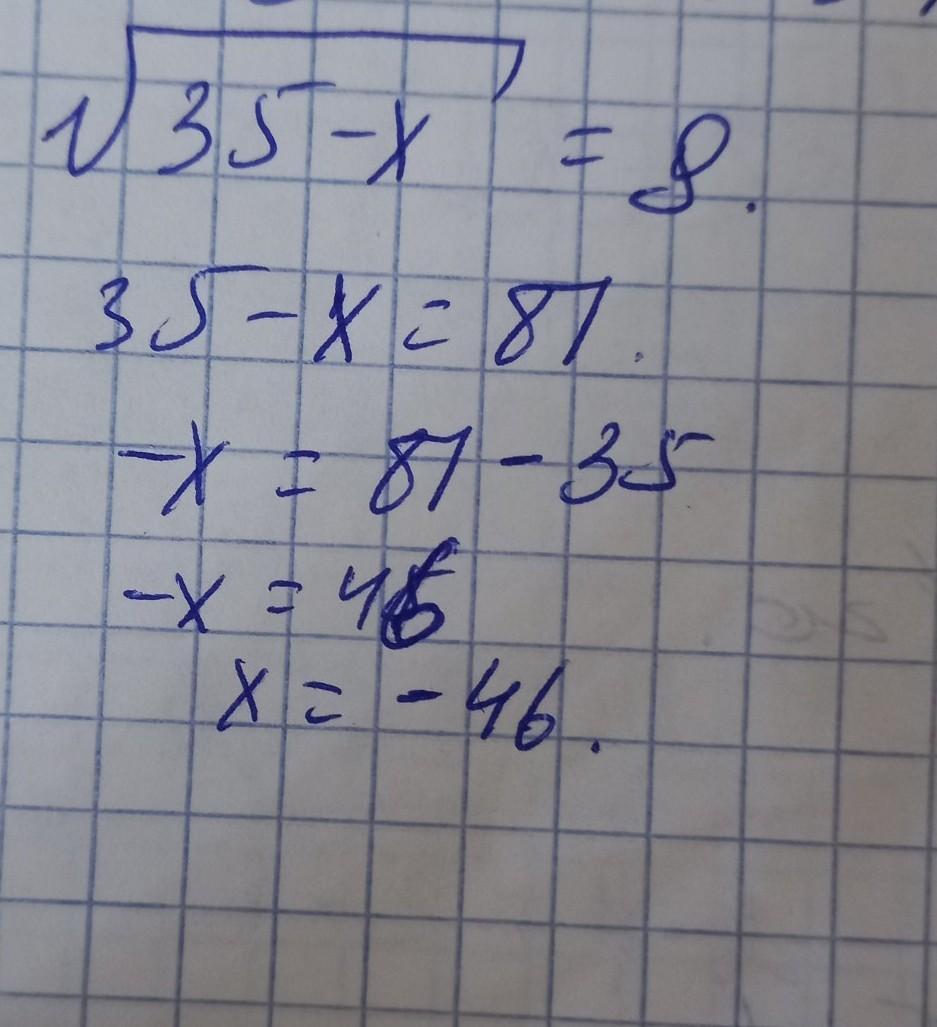 √(35-x) = 9.
35-x = 81.
-x = 81-35
-x = 46
x = -46.